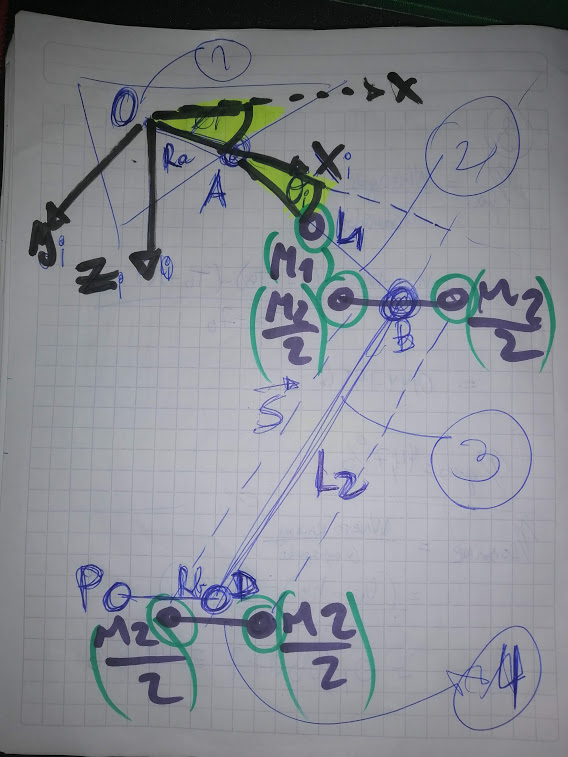 1
O
X
Ra
A
Xi
θi
yi
Zi
L1
2
(M1)
(M2/2)
B
(M2/2)
S
3
L2
P
Rb
D
(M2/2)
(M2/2)
4